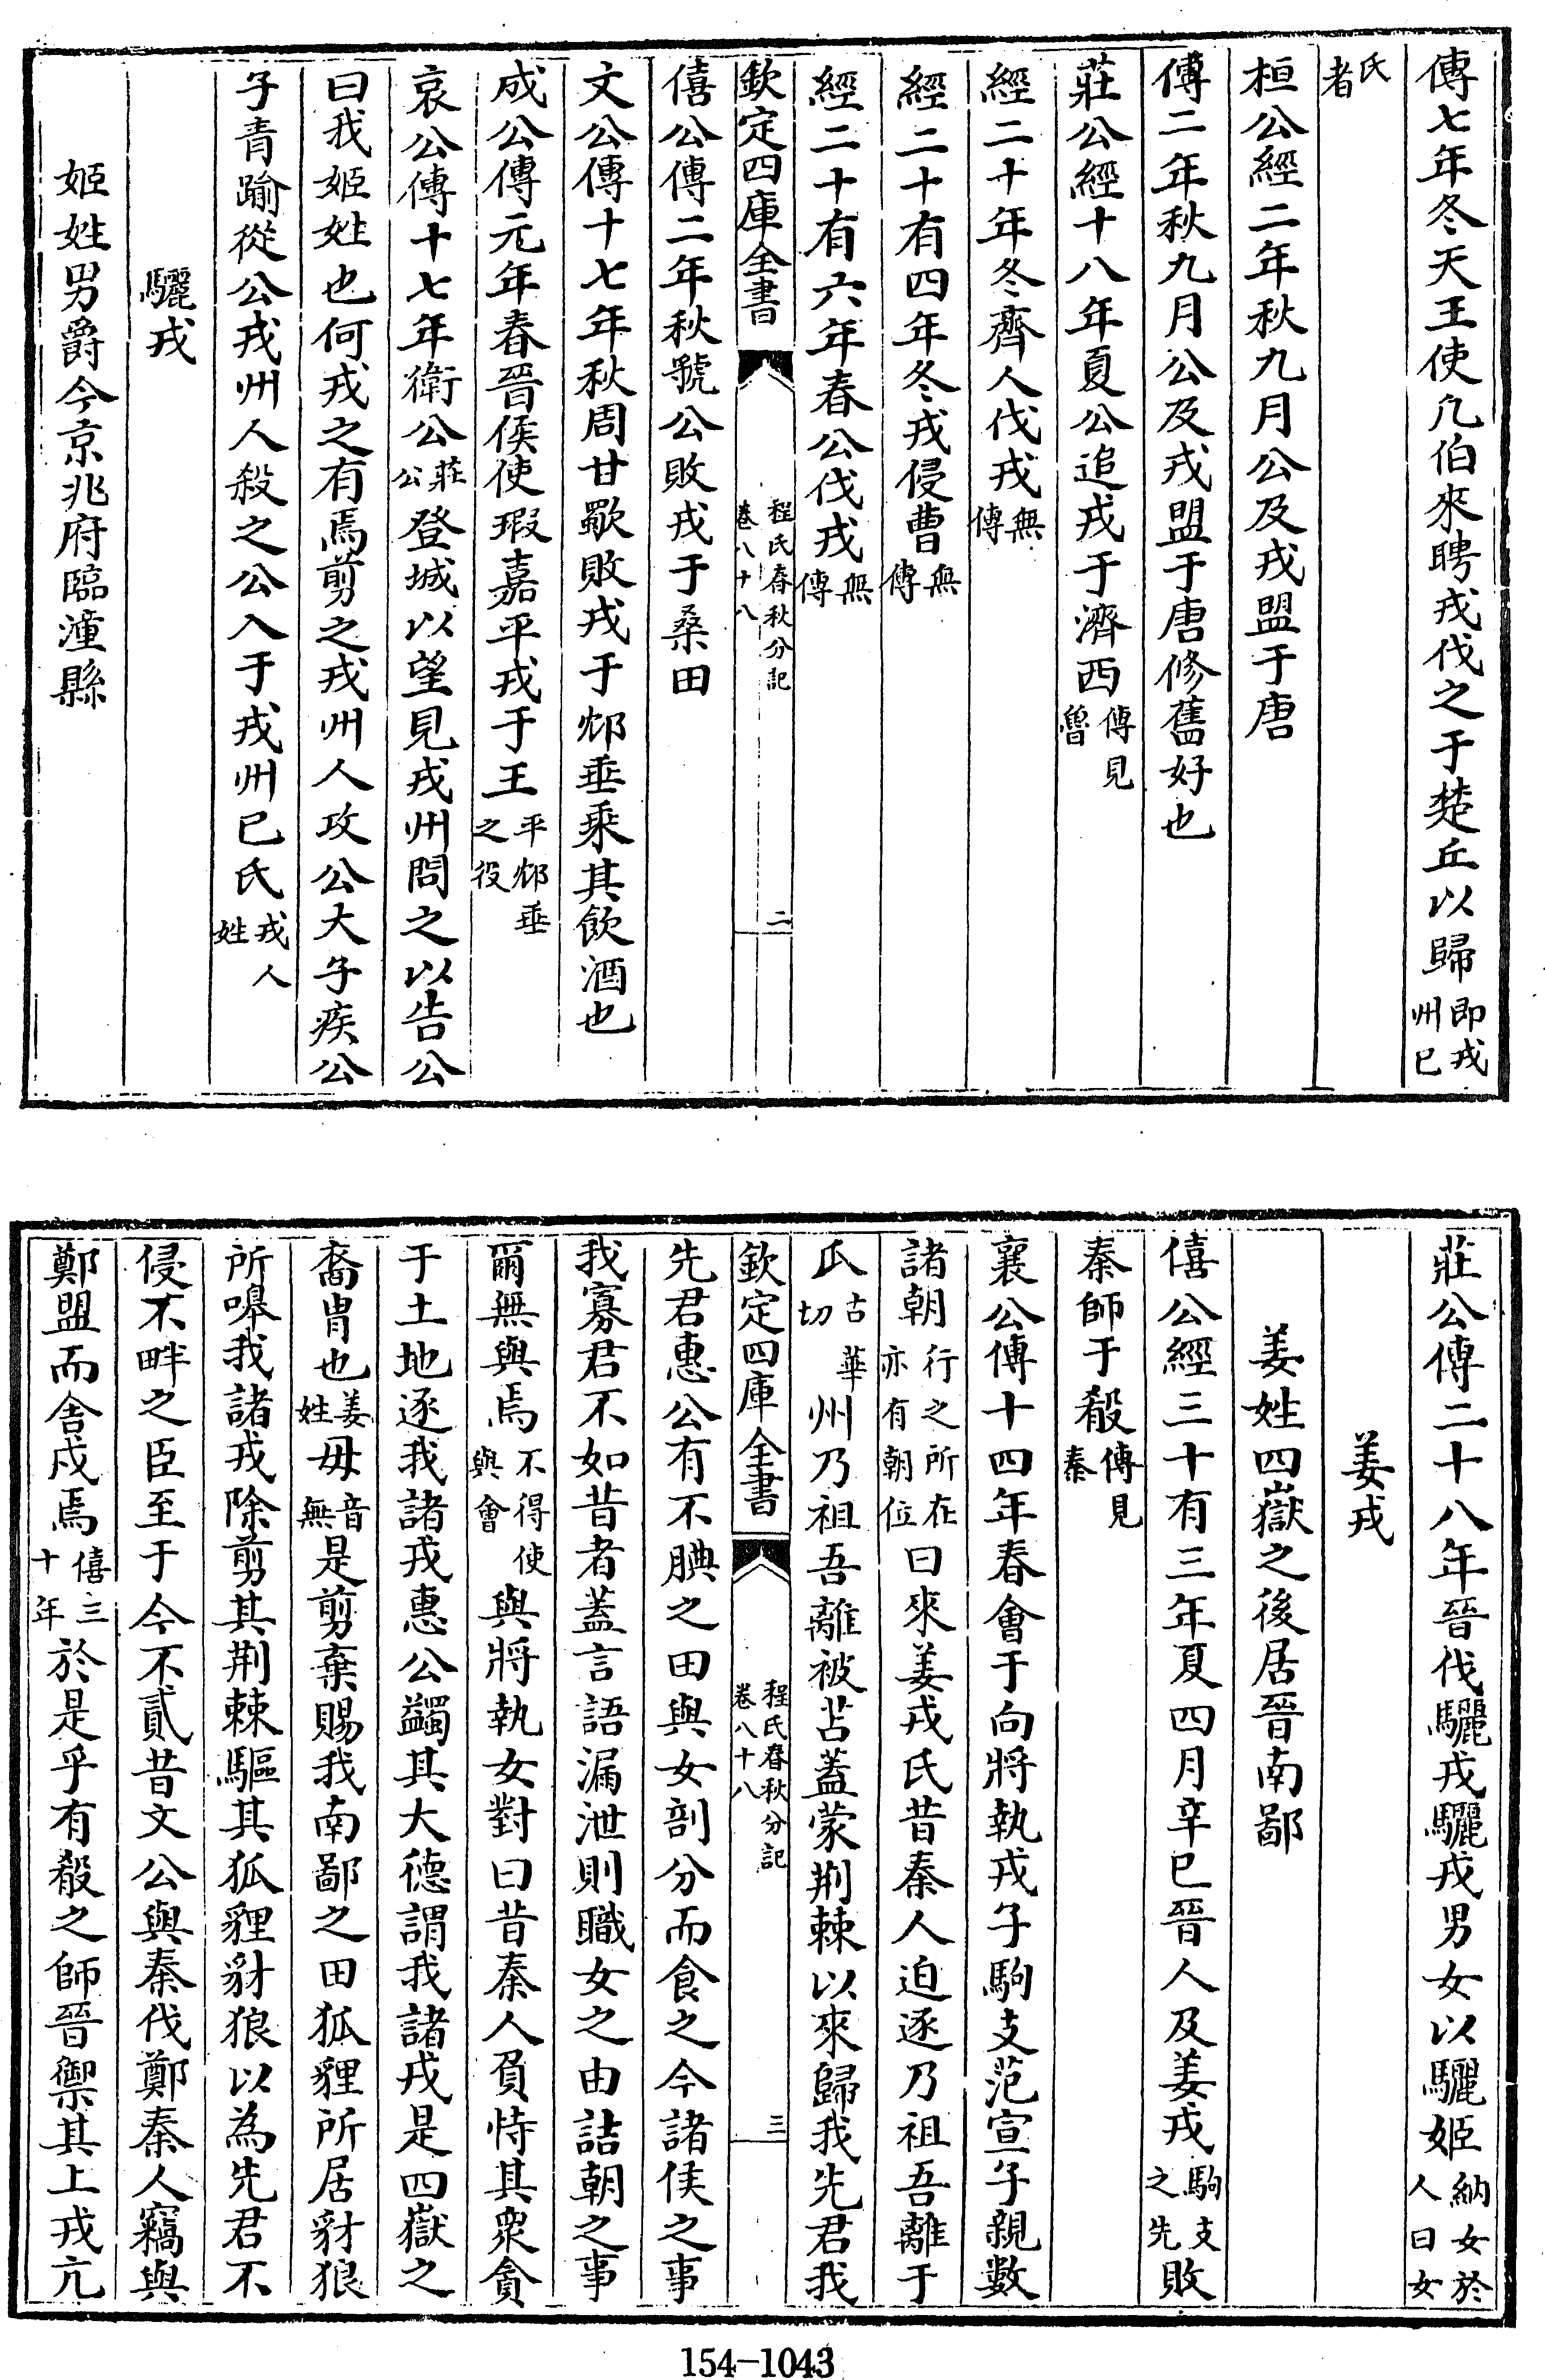 傳七年冬天王使凡伯來聘戎伐之于楚丘以歸即戎州已
氏者
桓公經二年秋九月公及戎盟于唐
傳二年秋九月公及戎盟于唐修舊好也
莊公經十八年夏公追戎于濟西傳見魯
經二十年冬齊人伐戎無傳
經二十有四年冬戎侵曹無傳
經二十有六年春公伐戎無傳
欽定四庫全書 程氏春秋分記卷八十八 二
僖公傳二年秋虢公敗戎于桑田
文公傳十七年秋周甘歜敗戎于邥垂乘其飲酒也
成公傳元年春晉侯使瑕嘉平戎于王平邥垂之役
哀公傳十七年衛公莊公登城以望見戎州問之以告公
曰我姬姓也何戎之有焉剪之戎州人攻公大子疾公
子青踰從公戎州人殺之公入于戎州已氏戎人姓
驪戎
姬姓男爵今京兆府臨潼縣
莊公傳二十八年晉伐驪戎驪戎男女以驪姬納女於人曰女
姜戎
姜姓四嶽之後居晉南鄙
僖公經三十有三年夏四月辛巳晉人及姜戎駒支之先敗
秦師于殽傳見秦
襄公傳十四年春會于向將執戎子駒支范宣子親數
諸朝行之所在亦有朝位曰來姜戎氏昔秦人迫逐乃祖吾離于
瓜古華切州乃祖吾離被苫蓋蒙荆棘以來歸我先君我
欽定四庫全書 程氏春秋分記卷八十八 三
先君惠公有不腆之田與女剖分而食之今諸侯之事
我寡君不如昔者蓋言語漏泄則職女之由詰朝之事
爾無與焉不得使與會與將執女對曰昔秦人負恃其衆貪
于土地逐我諸戎惠公蠲其大德謂我諸戎是四嶽之
裔冑也姜姓毋音無是剪棄賜我南鄙之田狐貍所居豺狼
所嘷我諸戎除剪其荆棘驅其狐貍豺狼以為先君不
侵不畔之臣至于今不貳昔文公與秦伐鄭秦人竊與
鄭盟而舍戍焉僖三十年於是乎有殽之師晉禦其上戎亢
154-1043